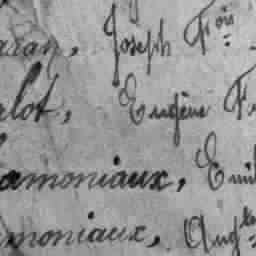 aray, Joseph Frois
lot, Eugène F
amoniaux, Emil
moniaux, Aug